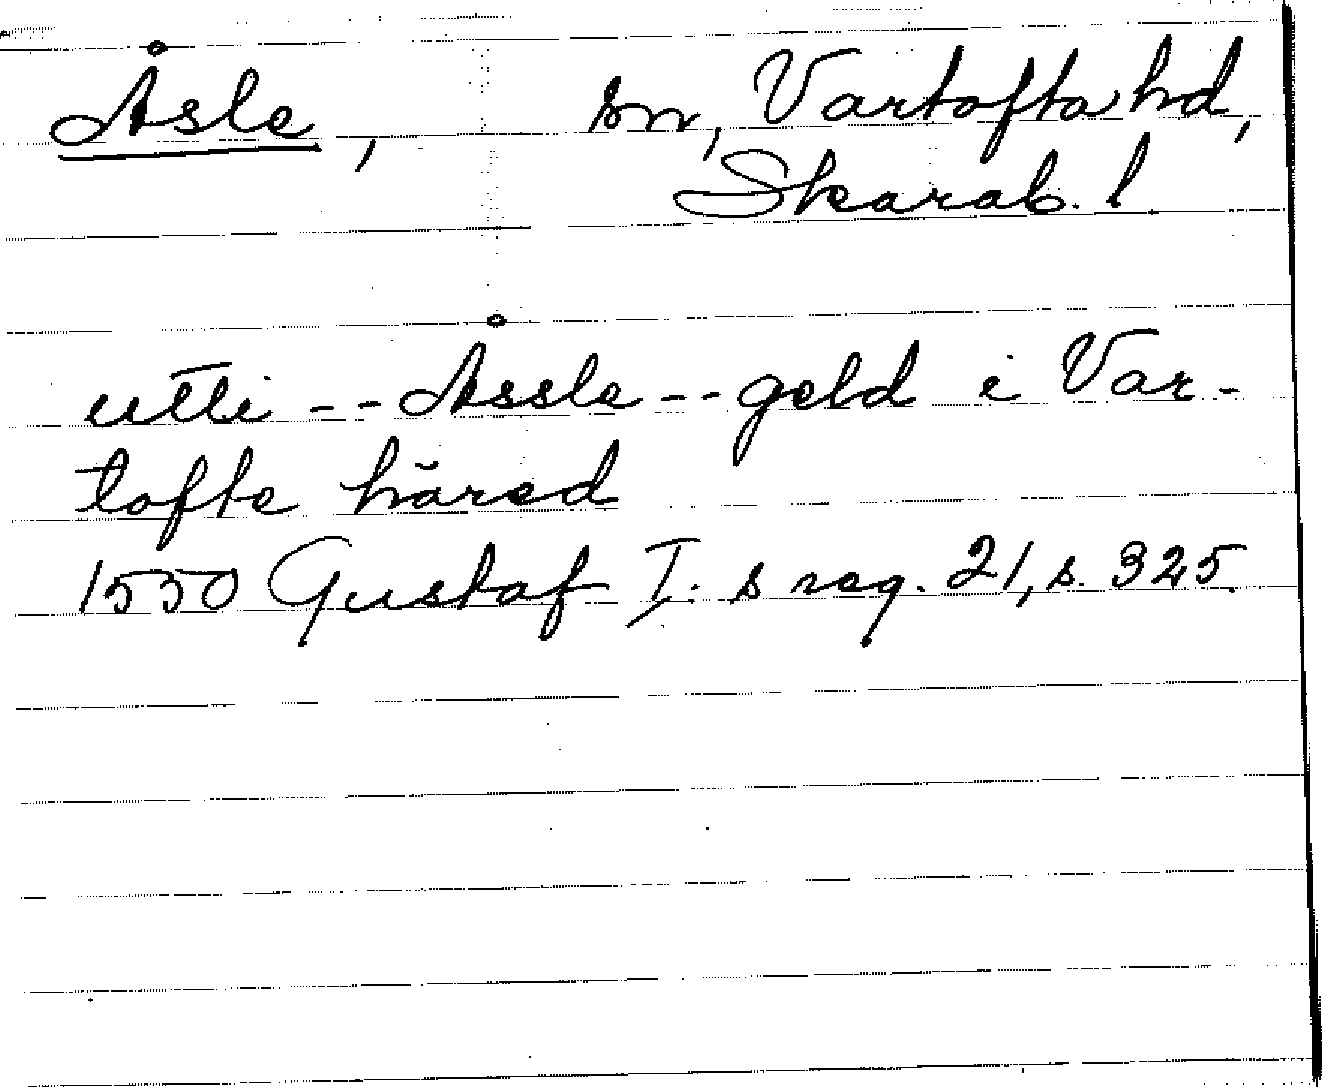 Åsle, sn, Vartofta hd,
Skarab. l.
utti -- Åssle -- geld i Var-
tofte häred
1550 Gustaf I:s reg. 21, s. 325